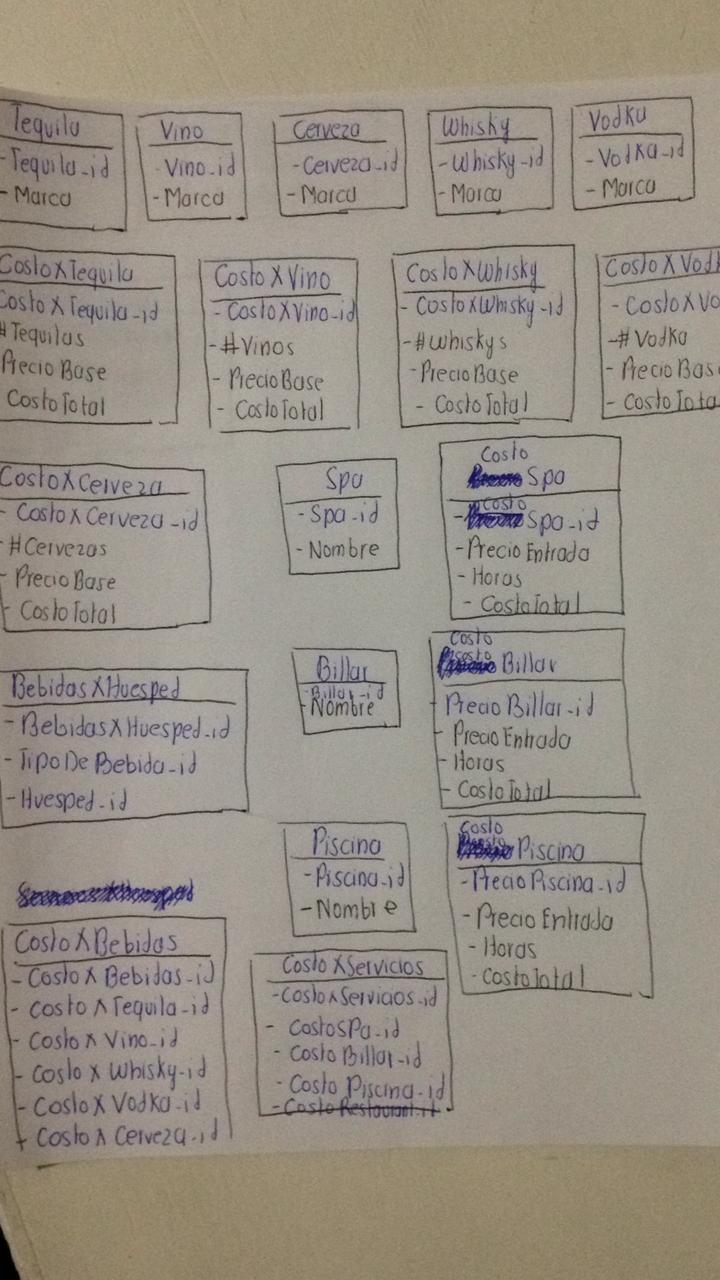 Tequila
- Tequila_id
- Marca
Vino
- Vino_id
- Marca
Cerveza
- Cerveza_id
- Marca
Whisky
- Whisky_id
- Marca
Vodka
- Vodka_id
- Marca
CostoXTequila
CostoXTequila_id
#Tequilas
Precio Base
CostoTotal
CostoXVino
- CostoXVino_id
- #Vinos
- PrecioBase
- CostoTotal
CostoXWhisky
- CostoXWhisky_id
- #Whiskys
- PrecioBase
- CostoTotal
CostoX
- CostoX
- #Vodka
- Precio
-
CostoXCerveza
- CostoXCerveza_id
#Cervezas
- PrecioBase
- CostoTotal
Spa
- Spa_id
- Nombre
Costo
Spa
- Costo
Spa_id
- Precio Entrada
- Horas
- CostoTotal
BebidasXHuesped
- BebidasXHuesped_id
- TipoDeBebida_id
- Huesped_id
Billar
- Billar_id
- Nombre
Costo
Billar
- Precio Billar_id
- Precio Entrada
- Horas
- CostoTotal
Piscina
- Piscina_id
- Nombre
Costo
Piscina
- PrecioPiscina_id
- Precio Entrada
- Horas
- CostoTotal
CostoXBebidas
- CostoXBebidas_id
- CostoXTequila_id
- CostoXVino_id
- CostoXWhisky_id
- CostoXVodka_id
- CostoXCerveza_id
CostoXServicios
- CostoXServicios_id
- CostoSPa_id
- Costo Billar_id
- Costo Piscina_id
- Costo Restaurant_id